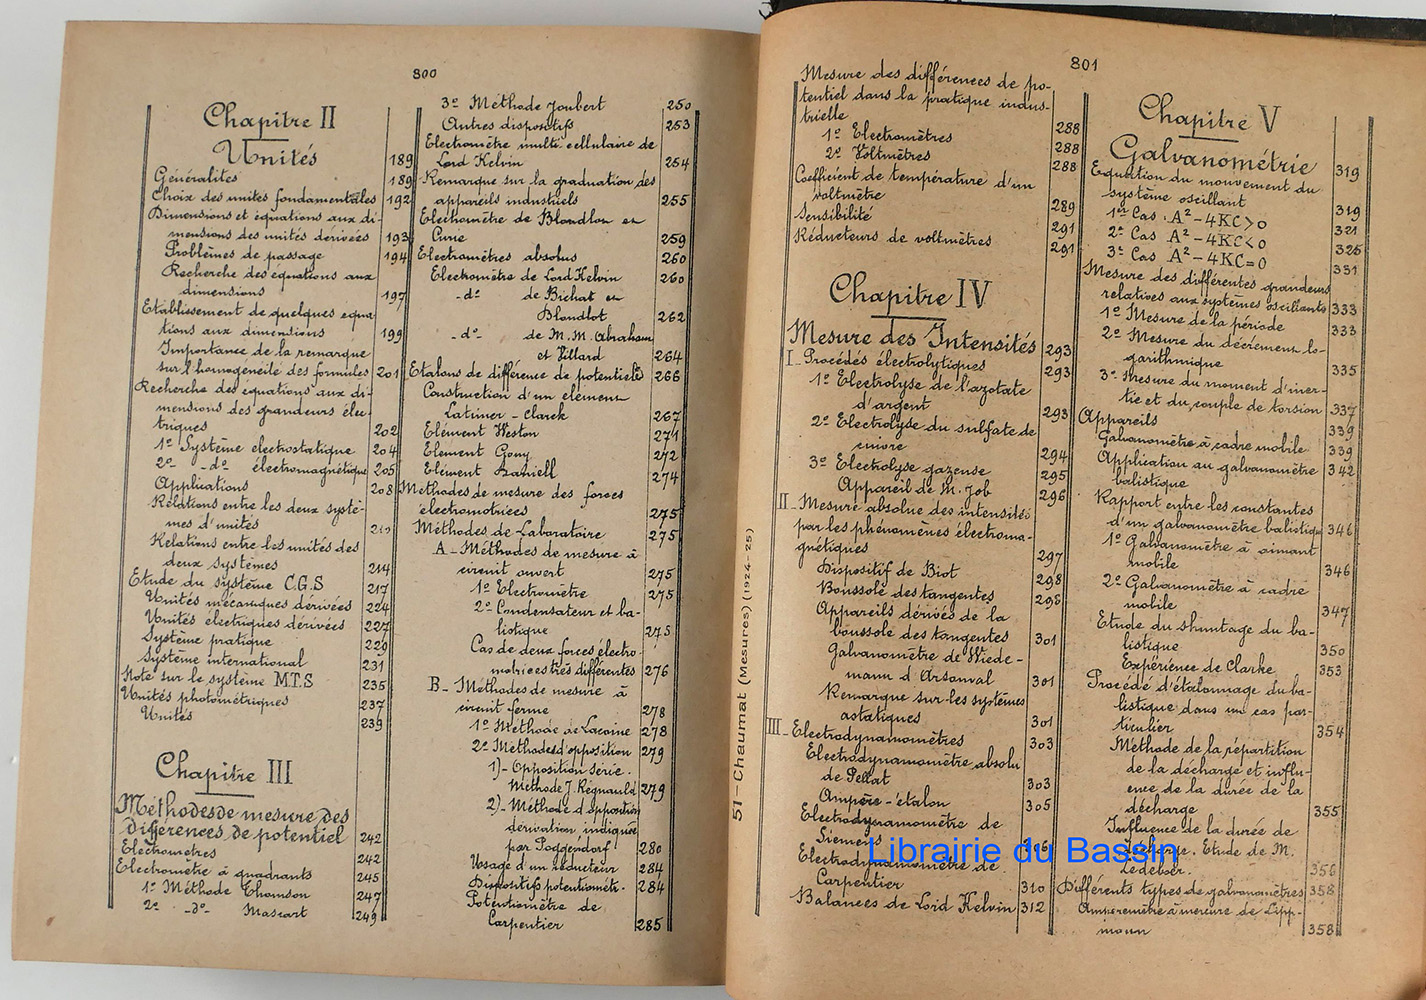 800
Chapitre II
Unités 189
Généralités 189
Choix des unités fondamentales 192
Dimensions et équations aux di-
mensions des unités dérivées 193
Problèmes de passage 194
Recherche des équations aux
dimensions 197
Etablissement de quelques équa-
tions aux dimensions 199
Importance de la remarque
sur l'homogénéité des formules 201
Recherche des équations aux di-
mensions des grandeurs élec-
triques 202
1º Système électrostatique 204
2º -dº- électromagnétique 205
Applications 208
Relations entre les deux systè-
mes d'unités 210
Relations entre les unités des
deux systèmes 214
Etude du système C.G.S 217
Unités mécaniques dérivées 224
Unités électriques dérivées 227
Système pratique 229
Système international 231
Note sur le système M.T.S 235
Unités photométriques 237
Unités 239
Chapitre III
Méthodes de mesure des
différences de potentiel 242
Electromètres 242
Electromètre à quadrants 245
1º Méthode Thomson 247
2º -dº- Mascart 249
3º Méthode Joubert 250
Autres dispositifs 253
Electromètre multicellulaire de
Lord Kelvin 254
Remarque sur la graduation des
appareils industriels 255
Electromètre de Blondlot et
Curie 259
Electromètres absolus 260
Electromètre de Lord Kelvin 260
-dº- de Bichat et
Blondlot 262
-dº- de M.M. Abraham
et Villard 264
Etalons de différence de potentiels 266
Construction d'un élément
Latimer-Clarck 267
Elément Weston 271
Elément Gouy 272
Elément Daniell 274
Méthodes de mesure des forces
électromotrices 275
Méthodes de Laboratoire 275
A_Méthodes de mesure à
circuit ouvert 275
1º Electromètre 275
2º Condensateur et ba-
listique 275
Cas de deux forces électro-
motrices très différentes 276
B_ Méthodes de mesure à
circuit fermé 278
1º Méthode de Lacoine 278
2º Méthodes d'opposition 279
1)- Opposition série.
Méthode J. Régnauld 279
2)- Méthode d'opposition
dérivation indiquée
par Poggendorf 280
Usage d'un réducteur 284
Dispositifs potentiomètr. 284
Potentiomètre de
Carpentier 285
801
Mesure des différences de po-
tentiel dans la pratique indus-
trielle 288
1º Electromètres 288
2º Voltmètres 288
Coefficient de température d'un
voltmètre 289
Sensibilité 291
Réducteurs de voltmètres 291
Chapitre IV
Mesure des Intensités 293
I_Procédés électrolytiques 293
1º Electrolyse de l'azotate
d'argent 293
2º Electrolyse du sulfate de
cuivre 294
3º Electrolyse gazeuse 295
Appareil de M. Job 296
II_Mesure absolue des intensités
par les phénomènes électroma-
gnétiques 297
Dispositif de Biot 298
Boussole des tangentes 298
Appareils dérivés de la
boussole des tangentes 301
Galvanomètre de Wiede-
mann d'Arsonval 301
Remarque sur les systèmes
astatiques 301
III_Electrodynamomètres 303
Electrodynamomètre absolu
de Pellat 303
Ampère-étalon 305
Electrodynamomètre de
Siemens 306
Electrodynamomètre de
Carpentier 310
Balances de Lord Kelvin 312
51-Chaumat (Mesures) (1924-25)
Chapitre V
Galvanométrie 319
Equation du mouvement du
système oscillant 319
1er Cas. A²-4KC>0 321
2º Cas A²-4KC<0 325
3º Cas A²-4KC=0 331
Mesure des différentes grandeurs
relatives aux systèmes oscillants 333
1º Mesure de la période 333
2º Mesure du décrément lo-
garithmique 335
3º Mesure du moment d'iner-
tie et du couple de torsion 337
Appareils 339
Galvanomètre à cadre mobile 339
Application au galvanomètre 342
balistique
Rapport entre les constantes
d'un galvanomètre balistique 346
1º Galvanomètre à aimant
mobile 346
2º Galvanomètre à cadre
mobile 347
Etude du shuntage du ba-
listique 350
Expérience de Clarke 353
Procédé d'étalonnage du ba-
listique dans un cas par-
ticulier 354
Méthode de la répartition
de la décharge et influ-
ence de la durée de la
décharge 355
Influence de la durée de
décharge. Etude de M.
Ledeboer. 356
Différents types de galvanomètres 358
Ampèremètre à mercure de Lipp-
mann 358
Librairie du Bassin